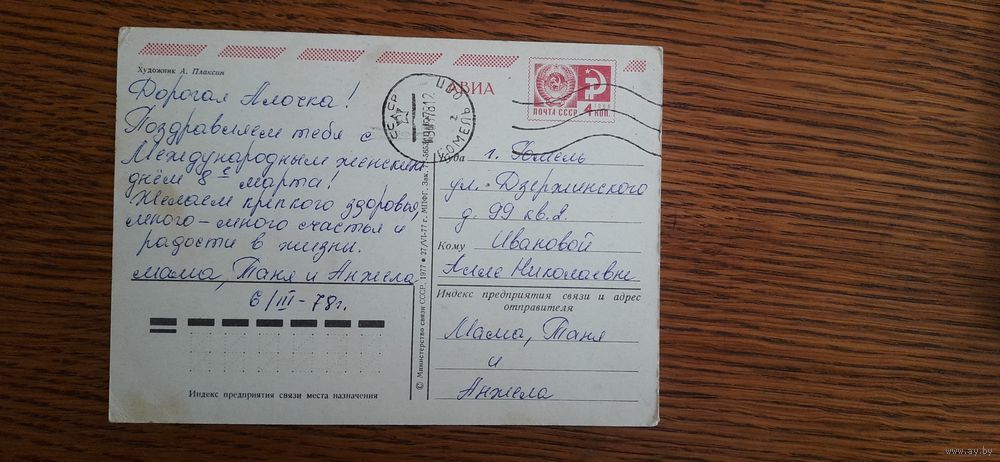 Художник А. Плаксин
АВИА
ПОЧТА СССР
1966
4 КОП.
ГОМЕЛЬ
Дорогая Алочка!
Поздравляем тебя с
Международным женским
днём 8 е марта!
Желаем крепкого здоровья,
много-много счастья и
радости в жизни.
мама, Таня и Анжела
6/III-78г.
Индекс предприятия связи места назначения
© Министерство связи СССР. 1977 • 27/VI-77 г. МПФГ. Зак.
Куда г. Гомель
ул. Дзержинского
д. 99 кв. 2
Кому Ивановой
Алле Николаевне
Индекс предприятия связи и адрес
отправителя
Мама, Таня
и
Анжела
www.ay.by